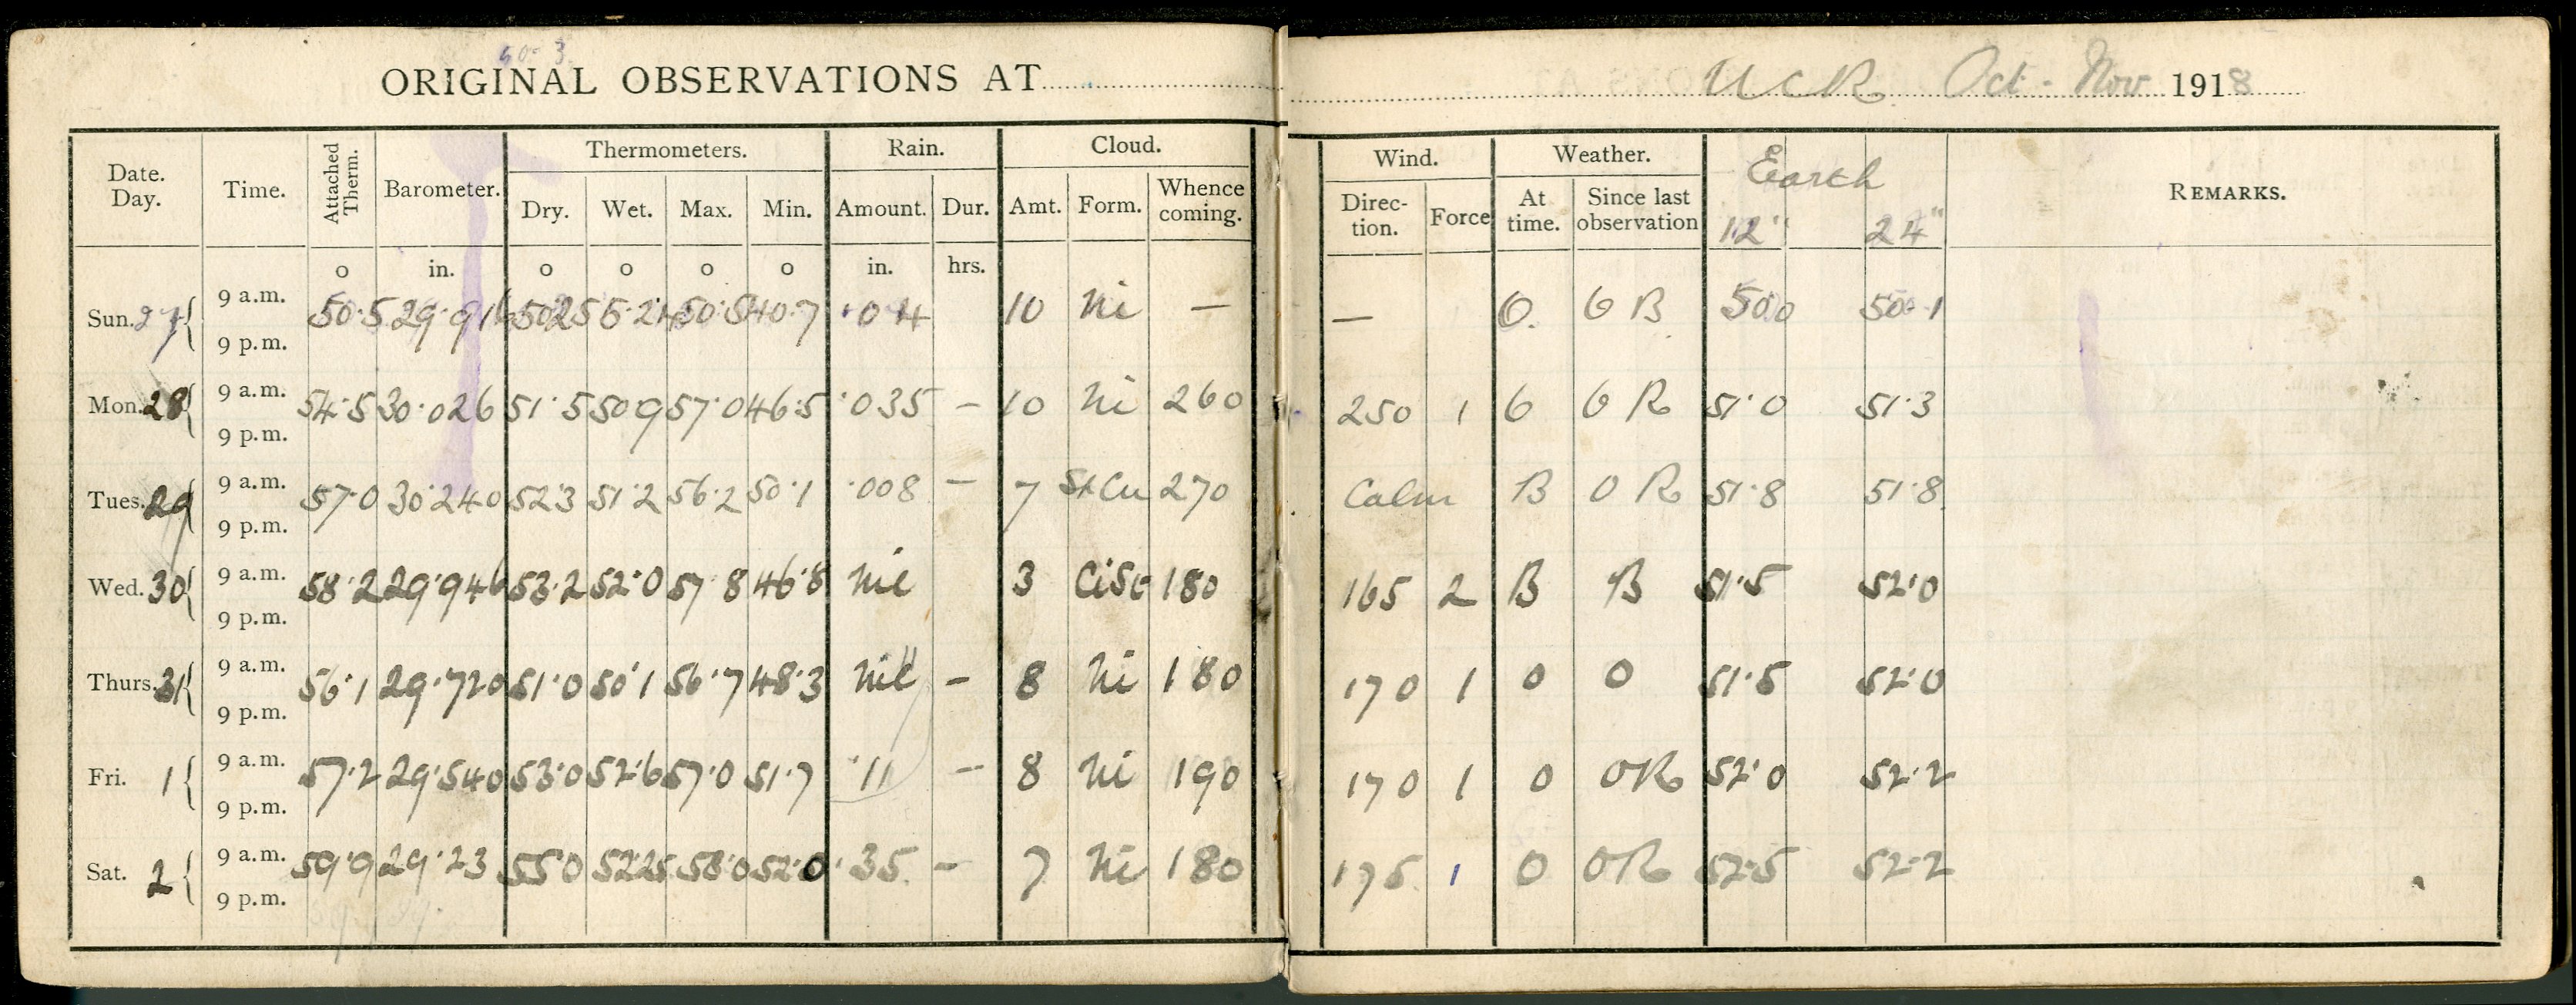 50.3
ORIGINAL OBSERVATIONS AT UCR Oct - Nov 1918
Thermometers. Rain. Cloud. Wind. Weather. Earth
Date. Day. Time. Attached Therm. Barometer. Dry. Wet. Max. Min. Amount. Dur. Amt. Form. Whence coming. Direc- tion. Force At time. Since last observation 12" 24" REMARKS.
o in. o o o o in. hrs.
Sun. 27 { 9 a.m. 50.5 29.916 50.5 40.7 .04 10 Ni — — O. O B 50.0 50.1
9 p.m.
Mon. 28 { 9 a.m. 54.5 30.026 51.5 50.9 57.0 46.5 .035 — 10 Ni 260 250 1 O O R 51.0 51.3
9 p.m.
Tues. 29 { 9 a.m. 57.0 30.240 52.3 51.2 56.2 50.1 .008 — 7 StCu 270 Calm B O R 51.8 51.8
9 p.m.
Wed. 30 { 9 a.m. 58.2 29.946 53.2 52.0 57.8 46.8 Nil 3 CiSt 180 165 2 B B 51.5 52.0
9 p.m.
Thurs. 31 { 9 a.m. 56.1 29.720 51.0 50.1 56.7 48.3 Nil — 8 Ni 180 170 1 O O 51.5 52.0
9 p.m.
Fri. 1 { 9 a.m. 57.2 29.540 53.0 52.6 57.0 51.7 .11 — 8 Ni 190 170 1 O OR 52.0 52.2
9 p.m.
Sat. 2 { 9 a.m. 59.9 29.23 55.0 52.25 58.0 52.0 .35 — 7 Ni 180 175 1 O OR 52.5 52.2
9 p.m.